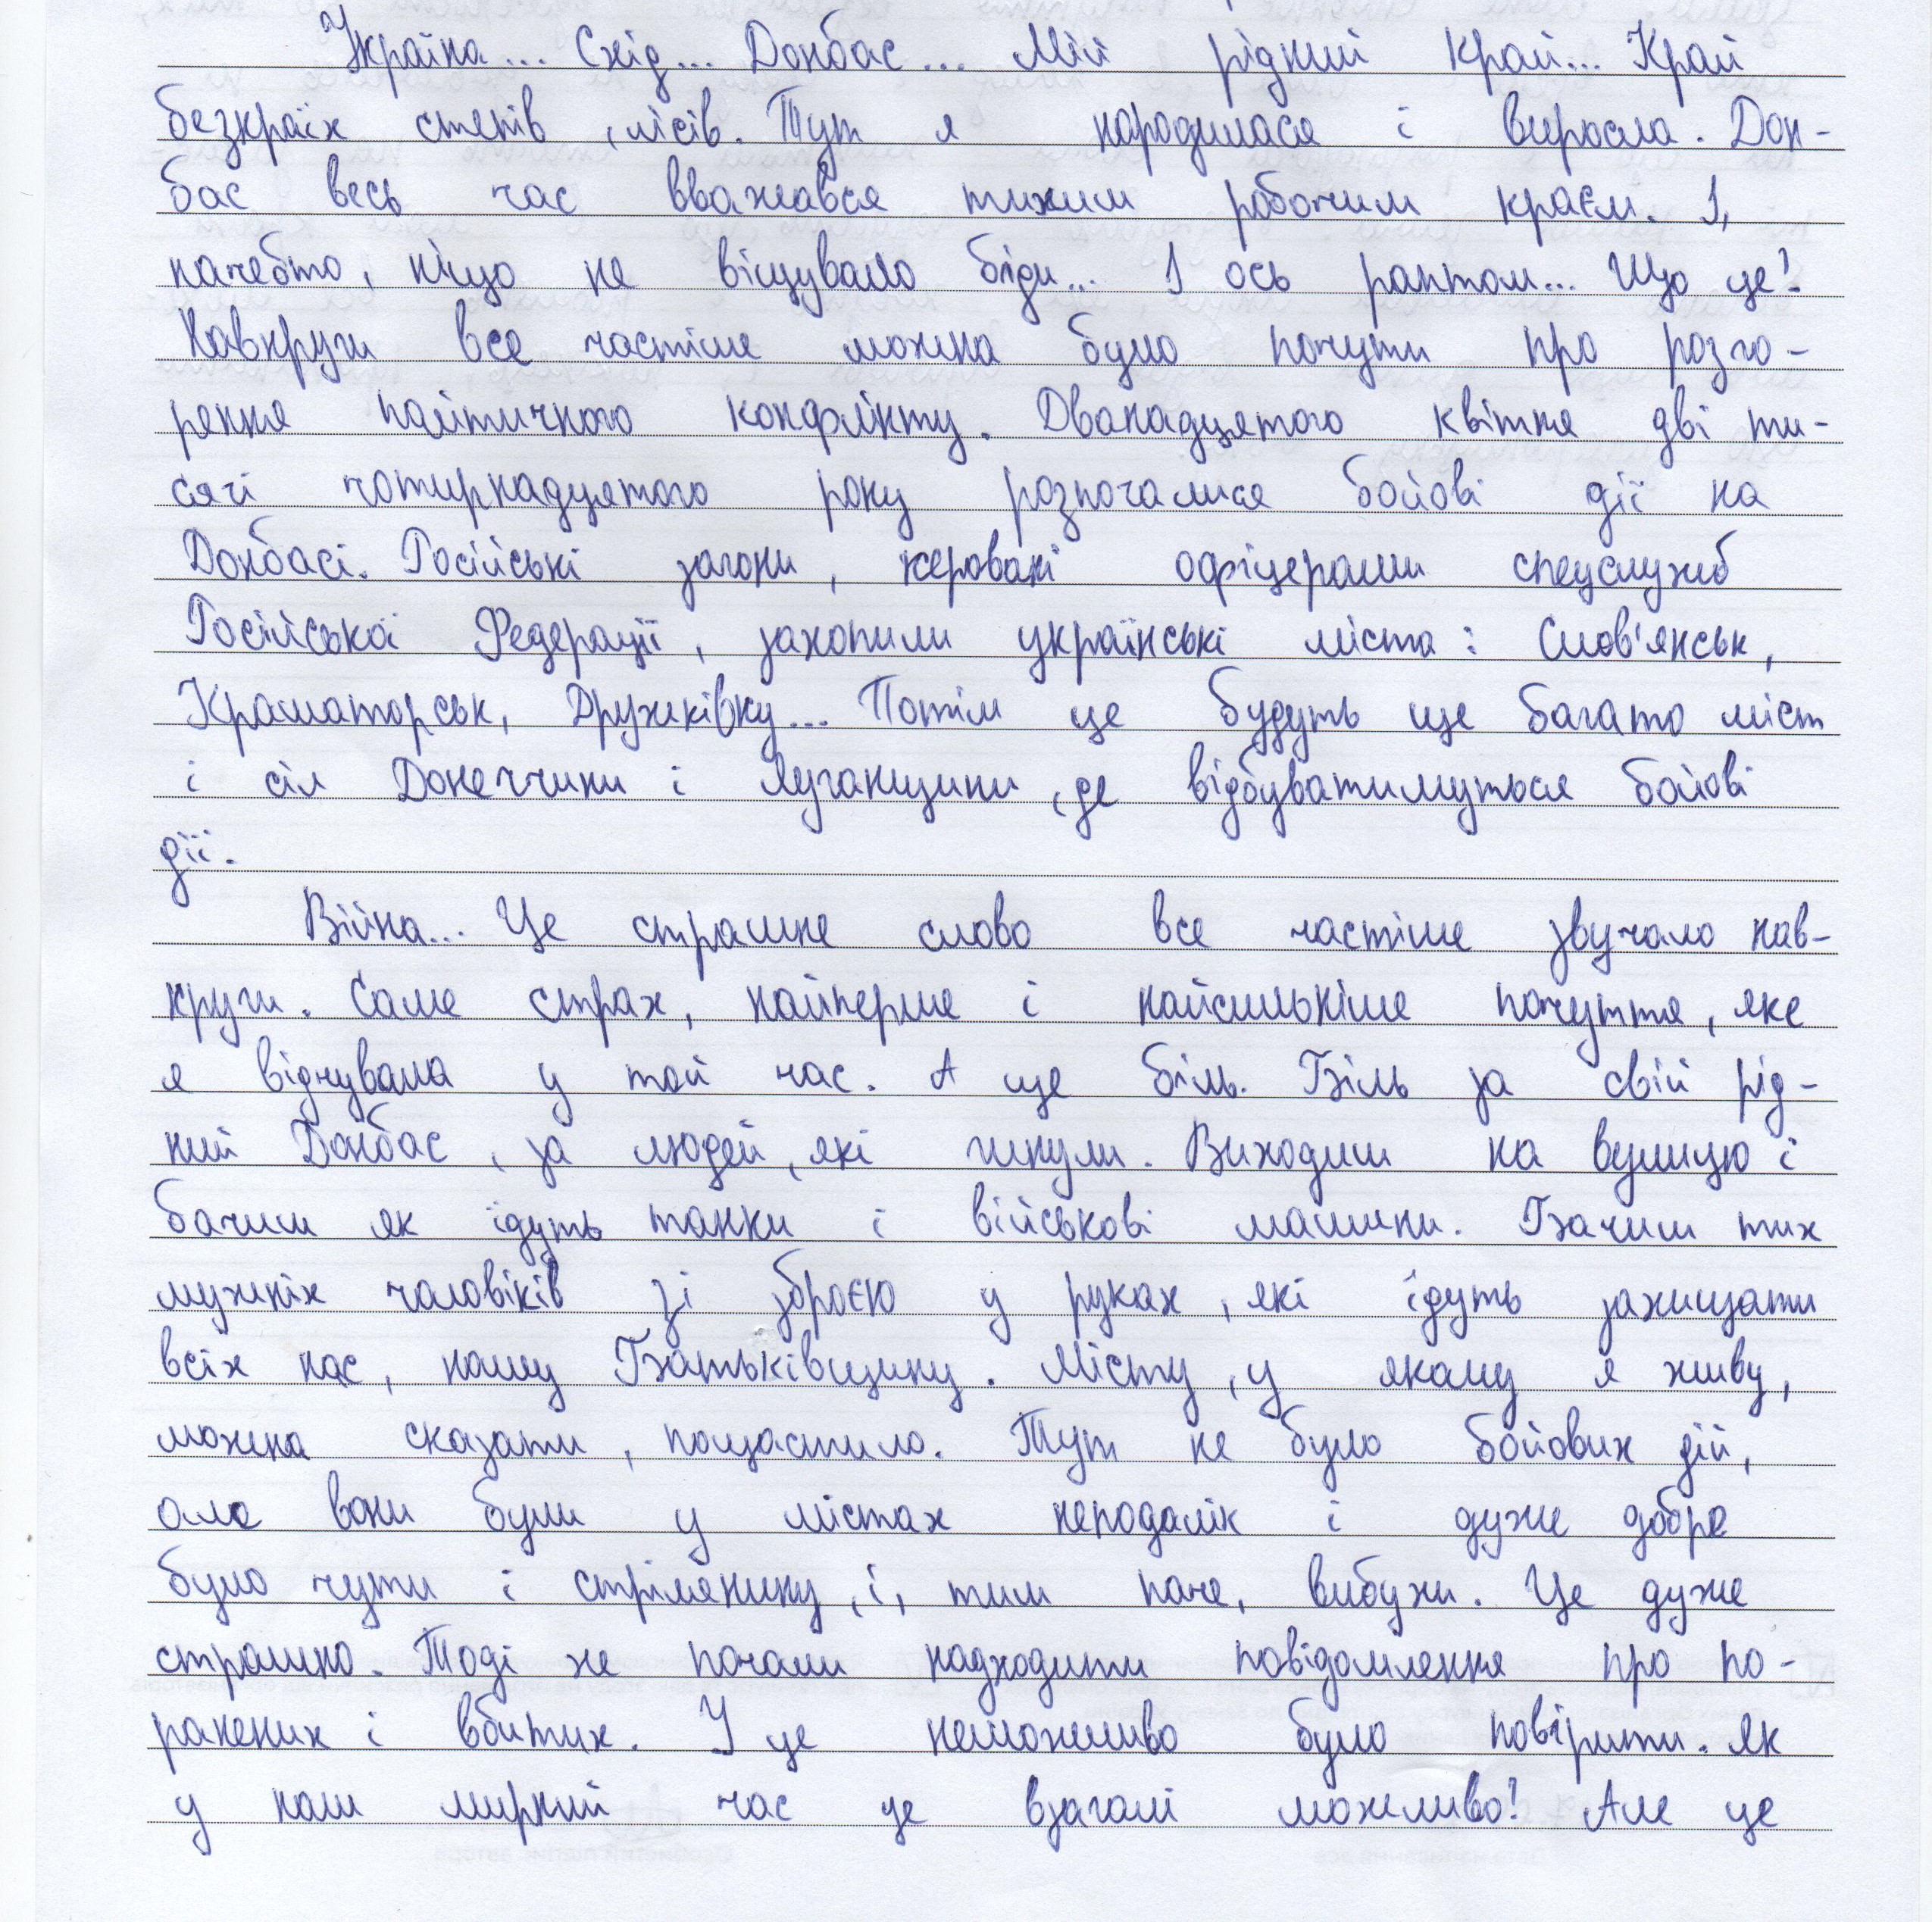 Україна... Схід... Донбас... Мій рідний край... Край
безкраїх степів, лісів. Тут я народилася і виросла. Дон-
бас весь час вважався тихим робочим краєм. І,
начебто, ніщо не віщувало біди... І ось раптом... Що це?
Навкруги все частіше можна було почути про розго-
рення політичного конфлікту. Дванадцятого квітня дві ти-
сячі чотирнадцятого року розпочалися бойові дії на
Донбасі. Російські загони, керовані офіцерами спецслужб
Російської Федерації, захопили українські міста: Слов'янськ,
Краматорськ, Дружківку... Потім це будуть ще багато міст
і сіл Донеччини і Луганщини, де відбуватимуться бойові
дії.
Війна... Це страшне слово все частіше звучало нав-
круги. Саме страх, найперше і найсильніше почуття, яке
я відчувала у той час. А ще біль. Біль за свій рід-
ний Донбас, за людей, які гинули. Виходиш на вулицю і
бачиш як їдуть танки і військові машини. Бачиш тих
мужніх чоловіків зі зброєю у руках, які їдуть захищати
всіх нас, нашу Батьківщину. Місту, у якому я живу,
можна сказати, пощастило. Тут не було бойових дій,
але вони були у містах неподалік і дуже добре
було чути і стрілянину, і, тим паче, вибухи. Це дуже
страшно. Тоді же почали надходити повідомлення про по-
ранених і вбитих. У це неможливо було повірити. Як
у наш мирний час це взагалі можливо? Але це